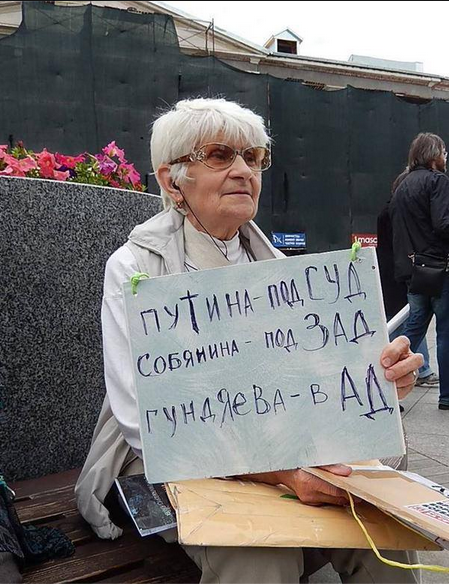 ПУТИНА-под СУД
СОБЯНИНА-под ЗАД
ГУНДЯЕВА-в АД